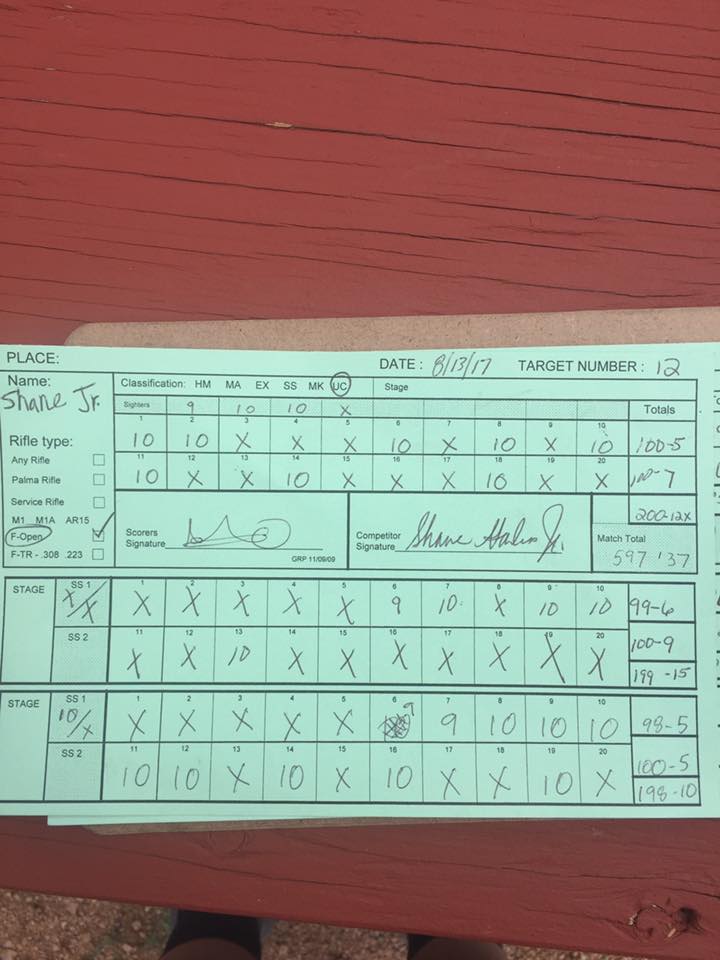 PLACE: DATE : 8/13/17 TARGET NUMBER : 12
Name: Shane Jr.
Classification: HM MA EX SS MK UC Stage
Sighters 9 10 10 X Totals
1 2 3 4 5 6 7 8 9 10
10 10 X X X 10 X 10 X 10 100-5
11 12 13 14 15 16 17 18 19 20
10 X X 10 X X X 10 X X 100-7
200-12X
Rifle type:
Any Rifle
Palma Rifle
Service Rifle
M1 M1A AR15
F-Open
F-TR - .308 .223
Scorers
Signature
GRP 11/09/09
Competitor
Signature Shane Jr.
Match Total
597 '37
STAGE SS 1 X/X
1 2 3 4 5 6 7 8 9 10
X X X X X 9 10 X 10 10 99-6
SS 2
11 12 13 14 15 16 17 18 19 20
X X 10 X X X X X X X 100-9
199-15
STAGE SS 1 10/X
1 2 3 4 5 6 7 8 9 10
X X X X X 9 9 10 10 10 98-5
SS 2
11 12 13 14 15 16 17 18 19 20
10 10 X 10 X 10 X X 10 X 100-5
198-10